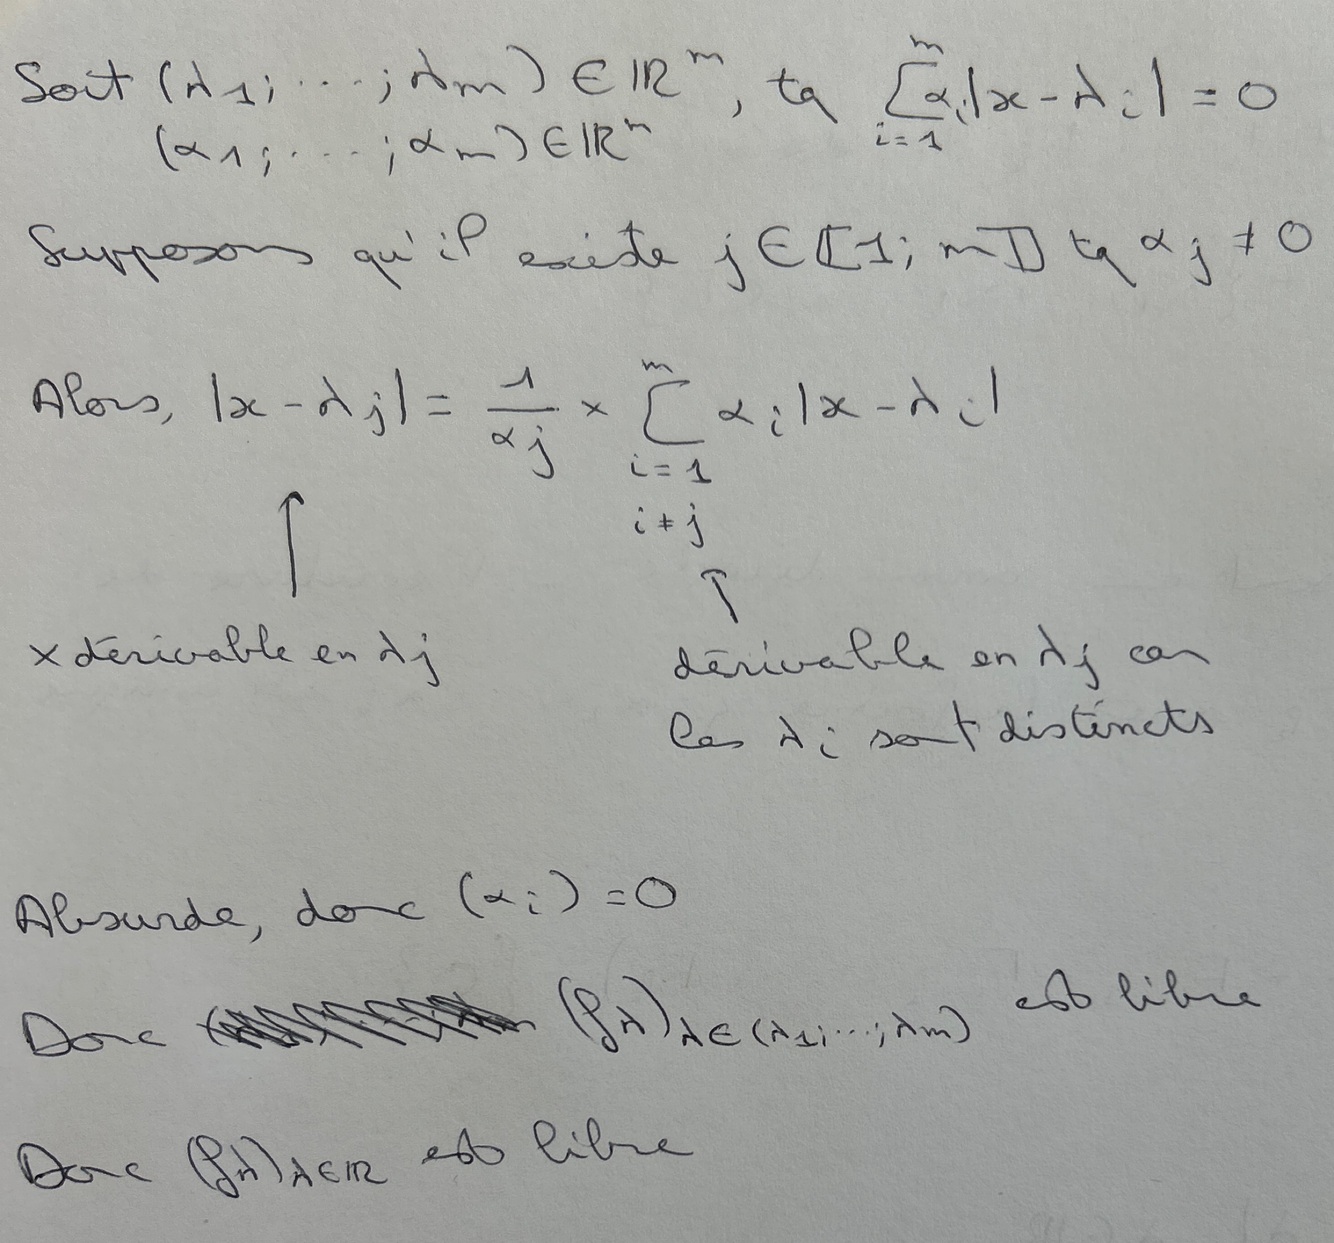 Soit (λ1; ... ; λm) ∈ ℝ^m, tq ∑_{i=1}^{m} αi|x - λi| = 0
(α1; ... ; αm) ∈ ℝ^n
Supposons qu'il existe j ∈ ⟦1; m⟧ tq αj ≠ 0
Alors, |x - λj| = 1/αj × ∑_{i=1, i≠j}^{m} αi|x - λi|
× dérivable en λj
dérivable en λj car
les λi sont distincts
Absurde, donc (αi) = 0
Donc (fλ)λ∈(λ1; ... ; λm) est libre
Donc (fλ)λ∈ℝ est libre